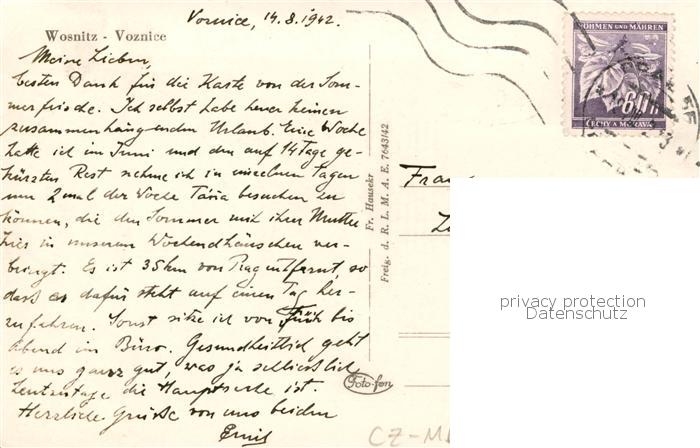 Voznice, 14.8.1942.
Wosnitz - Voznice
Meine Lieben,
besten Dank für die Karte von der Som-
merfrische. Ich selbst habe heuer keinen
zusammenhängenden Urlaub. Eine Woche
hatte ich im Juni und den auf 14 Tage ge-
kürzten Rest nehme ich in einzelnen Tagen
um 2 mal der Woche Táňa besuchen zu
können, die den Sommer mit ihrer Mutter
hier in unserem Wochendhäuschen ver-
bringt. Es ist 35 km von Prag entfernt, so
daß es dafür steht auf einen Tag her-
zufahren. Sonst sitze ich von Früh bis
abend im Büro. Gesundheitlich geht
es uns ganz gut, was ja schließlich
heutzutage die Hauptsache ist.
Herzliche Grüße von uns beiden
Emil
Fr. Hausekr
Freig. d. R. L. M. A. E. 7643/42
Foto-fon
BÖHMEN UND MÄHREN
60h
ČECHY A MORAVA
privacy protection
Datenschutz